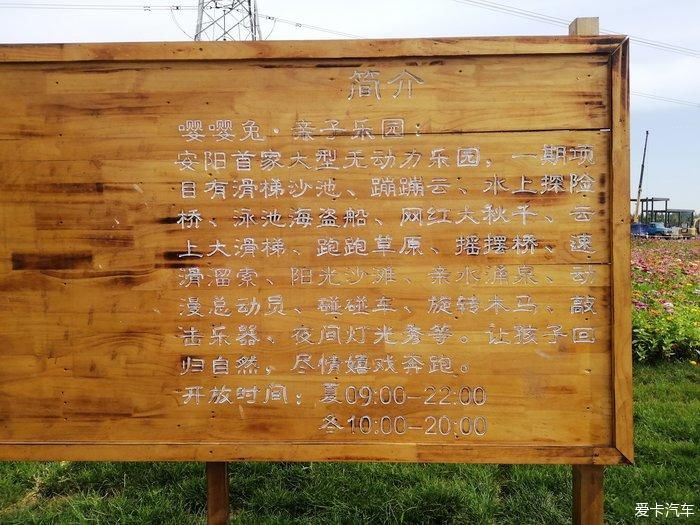 简介
嘤嘤兔·亲子乐园：
安阳首家大型无动力乐园，一期项
目有滑梯沙池、蹦蹦云、水上探险
桥、泳池海盗船、网红大秋千、云
上大滑梯、跑跑草原、摇摆桥、速
滑溜索、阳光沙滩、亲水涌泉、动
漫总动员、碰碰车、旋转木马、敲
击乐器、夜间灯光秀等。让孩子回
归自然，尽情嬉戏奔跑。
开放时间：夏09:00-22:00
冬10:00-20:00
爱卡汽车